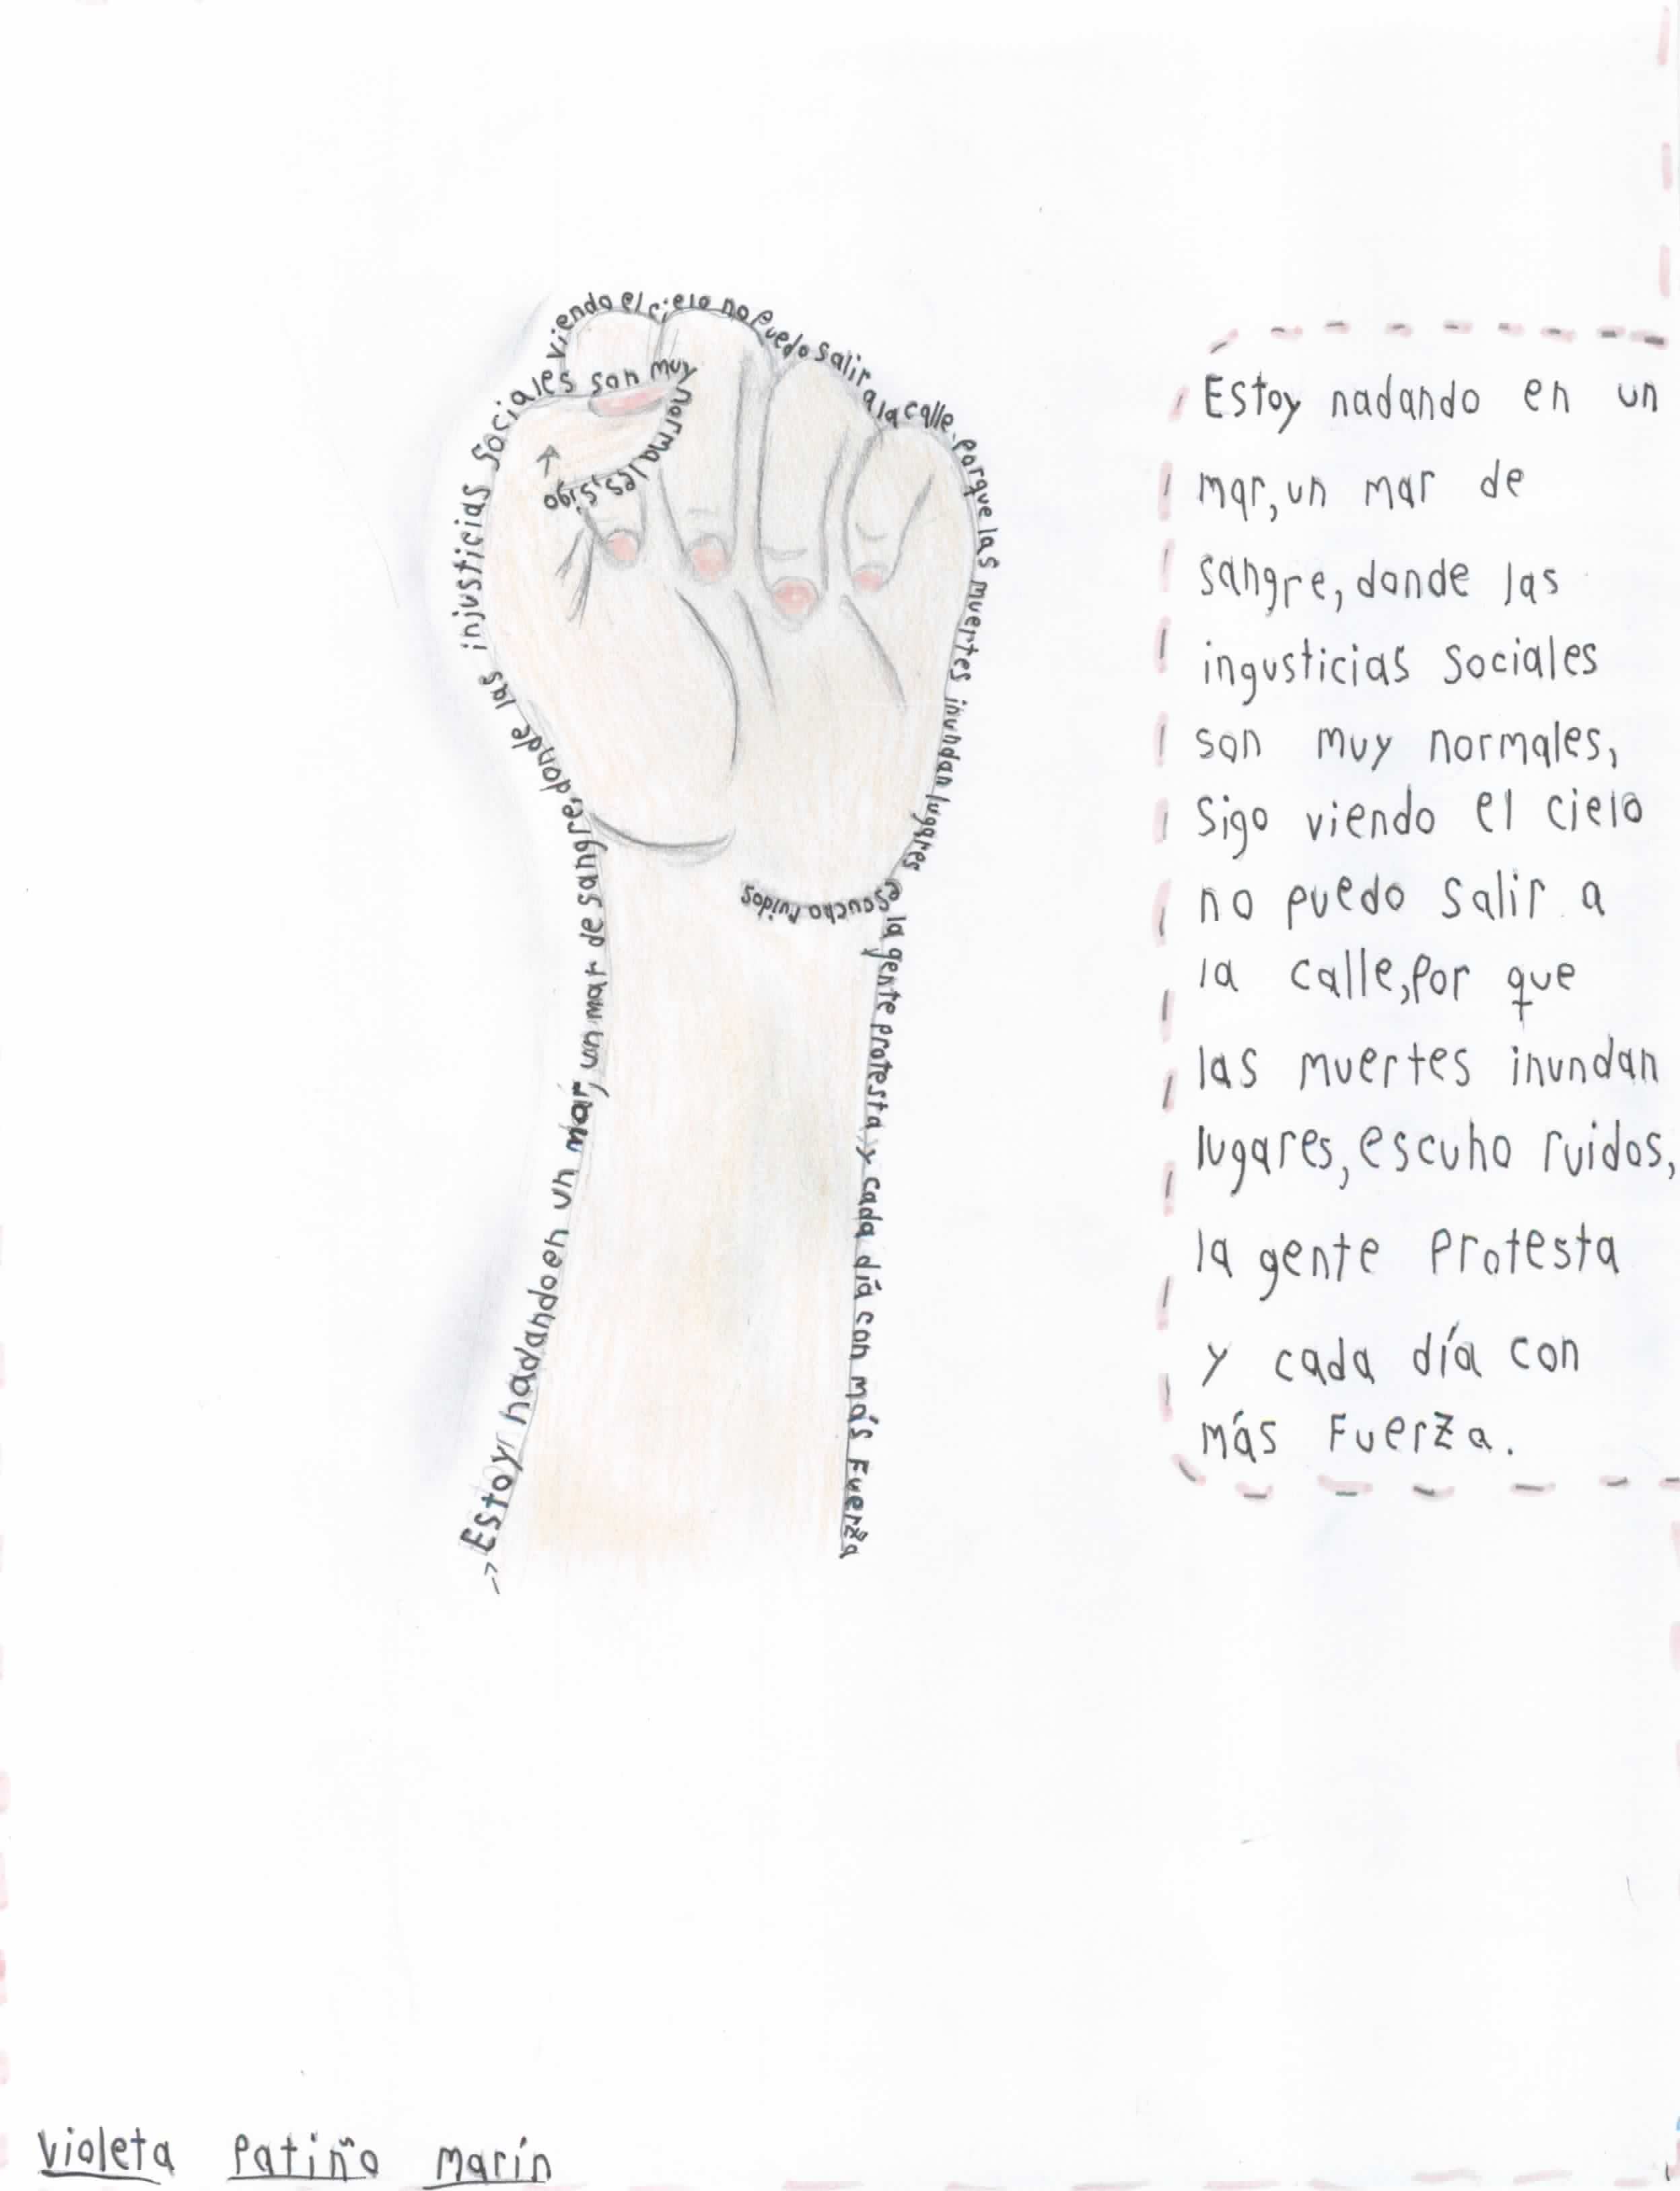 Estoy nadando en un mar, un mar de sangre, donde las injusticias sociales son muy normales, sigo viendo el cielo no puedo salir a la calle, porque las muertes inundan lugares escucho ruidos la gente protesta, y cada día con más Fuerza
Estoy nadando en un
mar, un mar de
sangre, donde las
ingusticias sociales
son muy normales,
sigo viendo el cielo
no puedo salir a
la calle, por que
las muertes inundan
lugares, escuho ruidos,
la gente protesta
y cada día con
más Fuerza.
Violeta Patiño Marín